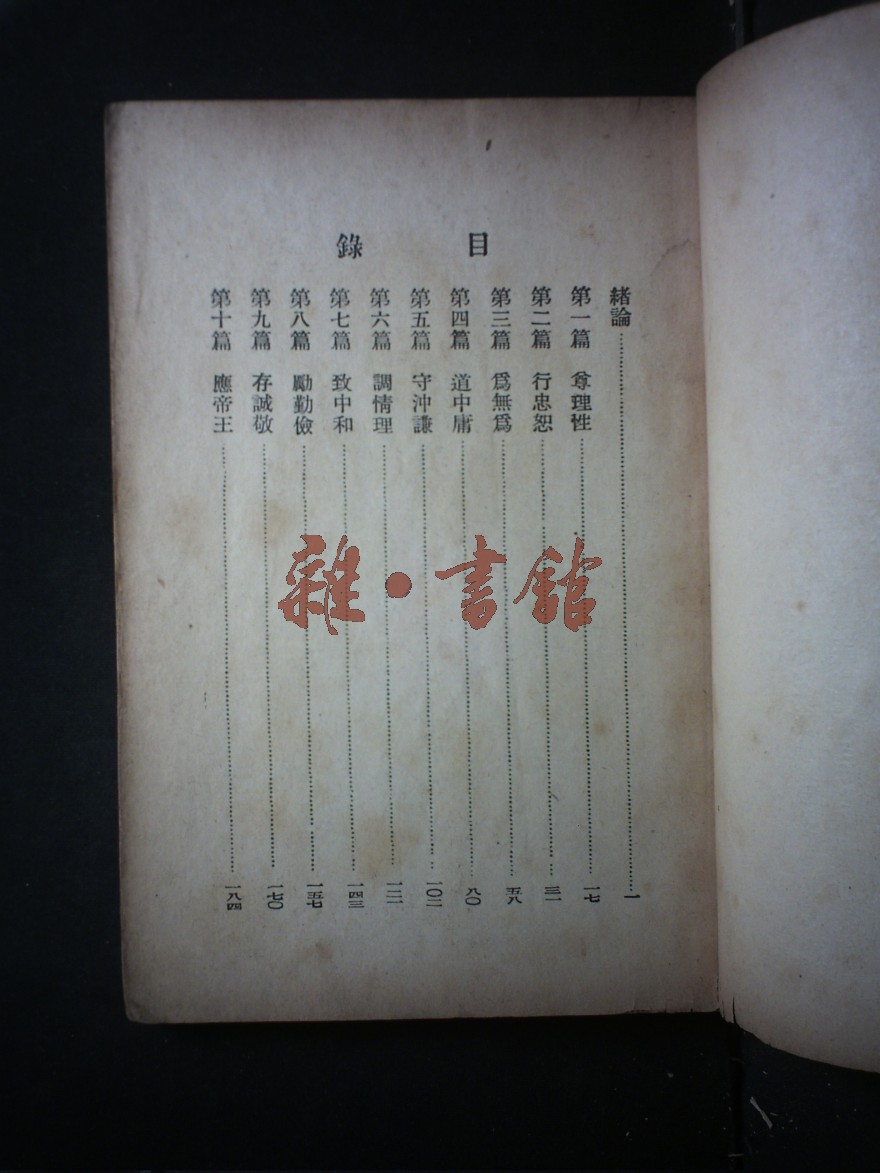 目錄
緒論…一
第一篇 尊理性…一七
第二篇 行忠恕…三一
第三篇 爲無爲…五八
第四篇 道中庸…八〇
第五篇 守沖謙…一〇二
第六篇 調情理…一二二
第七篇 致中和…一四三
第八篇 勵勤儉…一五七
第九篇 存誠敬…一七〇
第十篇 應帝王…一八四
雜·書館